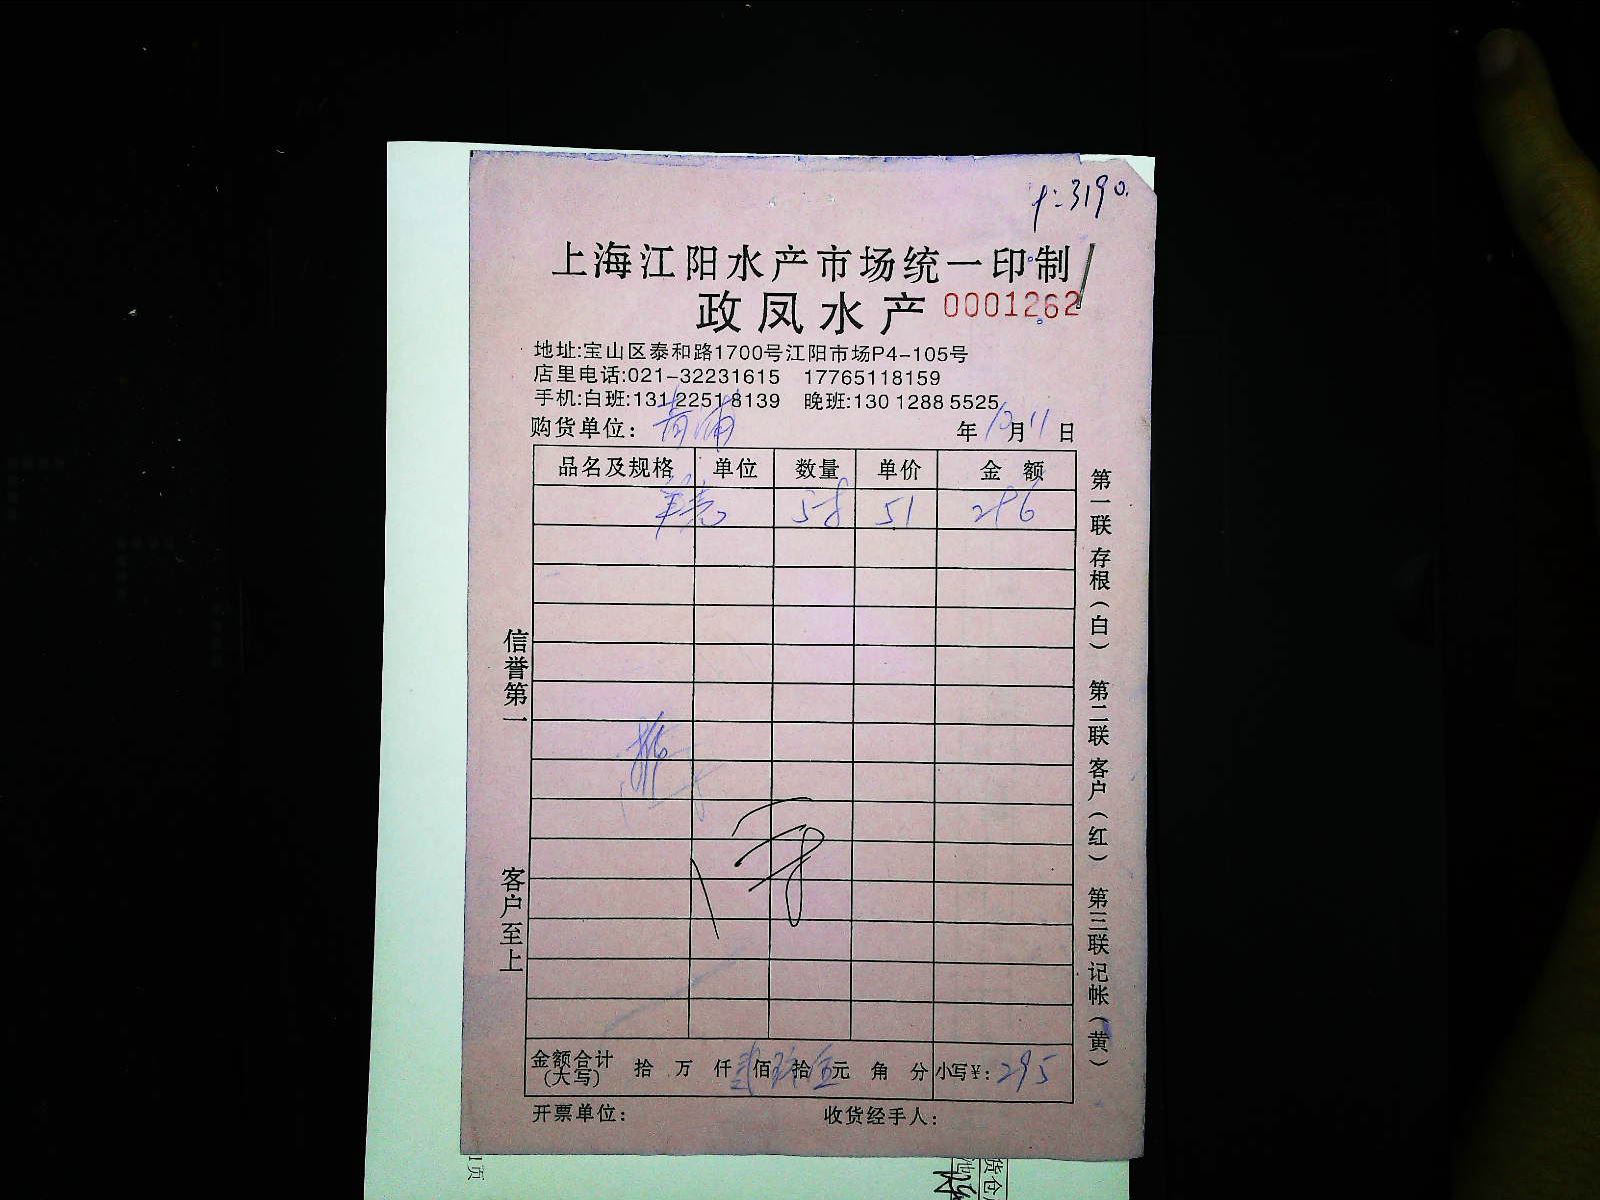 3190.
上海江阳水产市场统一印制
政凤水产 0001262
地址:宝山区泰和路1700号江阳市场P4-105号
店里电话:021-32231615 17765118159
手机:白班:131 2251 8139 晚班:130 1288 5525
购货单位: 青浦 年10月11日
品名及规格 单位 数量 单价 金额
58 51 286
信誉第一
客户至上
第一联 存根(白) 第二联 客户(红) 第三联 记帐(黄)
金额合计(大写) 拾 万 仟 贰佰 玖拾 伍元 角 分 小写¥: 295
开票单位: 收货经手人:
1页
货仓